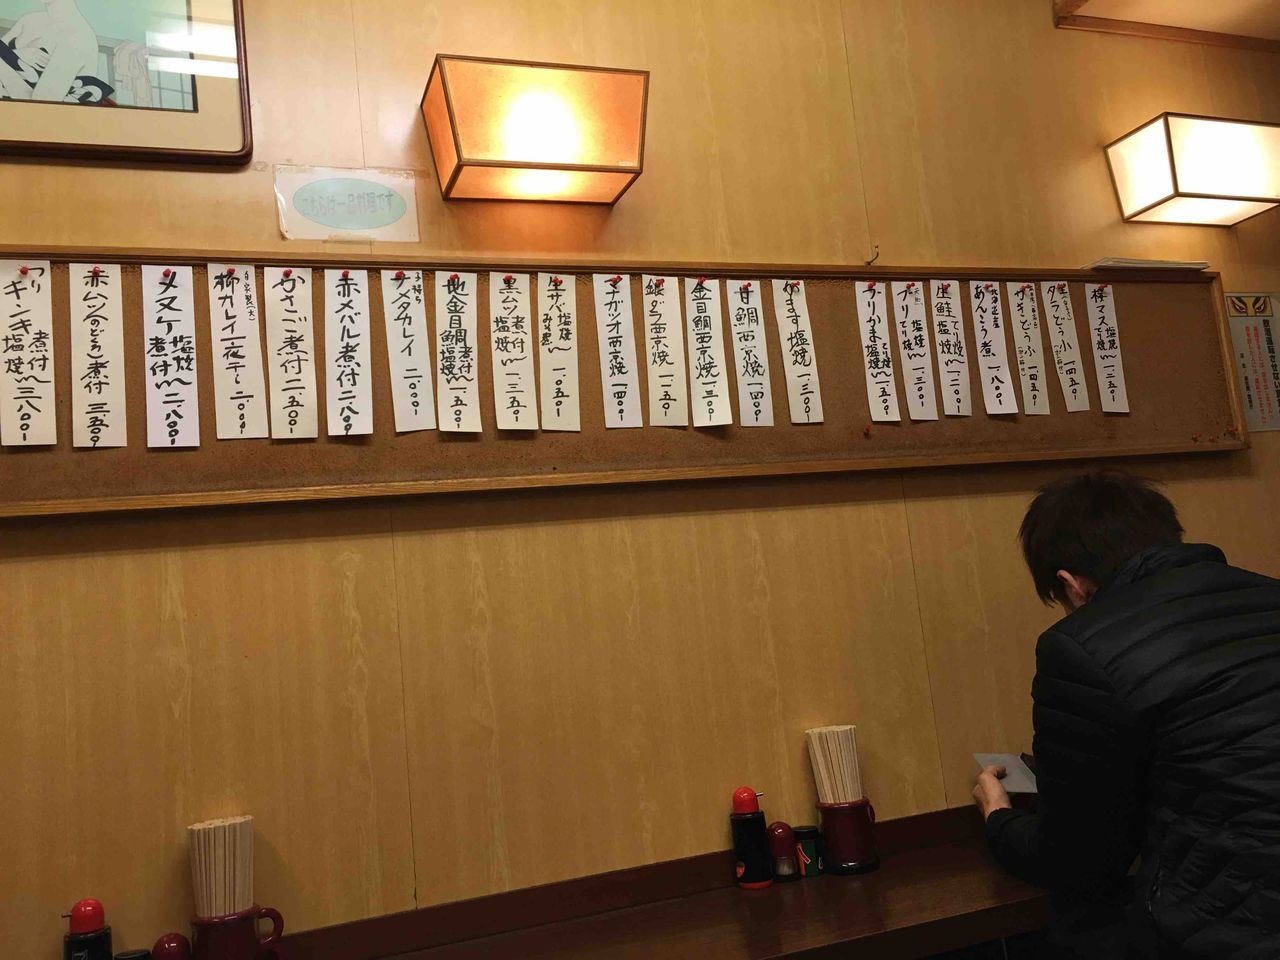 こちらは一品料理です
棒マス 塩焼 一、二五〇
タラどうふ 小 一、四五〇
かきどうふ 一、四五〇
北海道産
あんこう煮 一、八〇〇
生鮭 てり焼 塩焼 一、二〇〇
ブリ 塩焼 てり焼 一、三〇〇
ブリかま てり焼 塩焼 一、五〇〇
かます塩焼 一、三〇〇
甘鯛西京焼 一、四〇〇
金目鯛西京焼 一、三〇〇
銀ダラ西京焼 一、二五〇
マナガツオ西京焼 一、四〇〇
生サバ 塩焼 みそ煮 一、〇五〇
黒ムツ 煮付 塩焼 一、三五〇
地金目鯛 煮付 塩焼 一、五〇〇
子持ち
ナメタカレイ 二、〇〇〇
赤メバル煮付 二、八〇〇
かさご煮付 二、五〇〇
自家製(大)
柳カレイ一夜干し 二、二〇〇
メヌケ 塩焼 煮付 二、八〇〇
赤ムツ(のどぐろ)煮付 三、五〇〇
つり
キンキ 煮付 塩焼 三、八〇〇